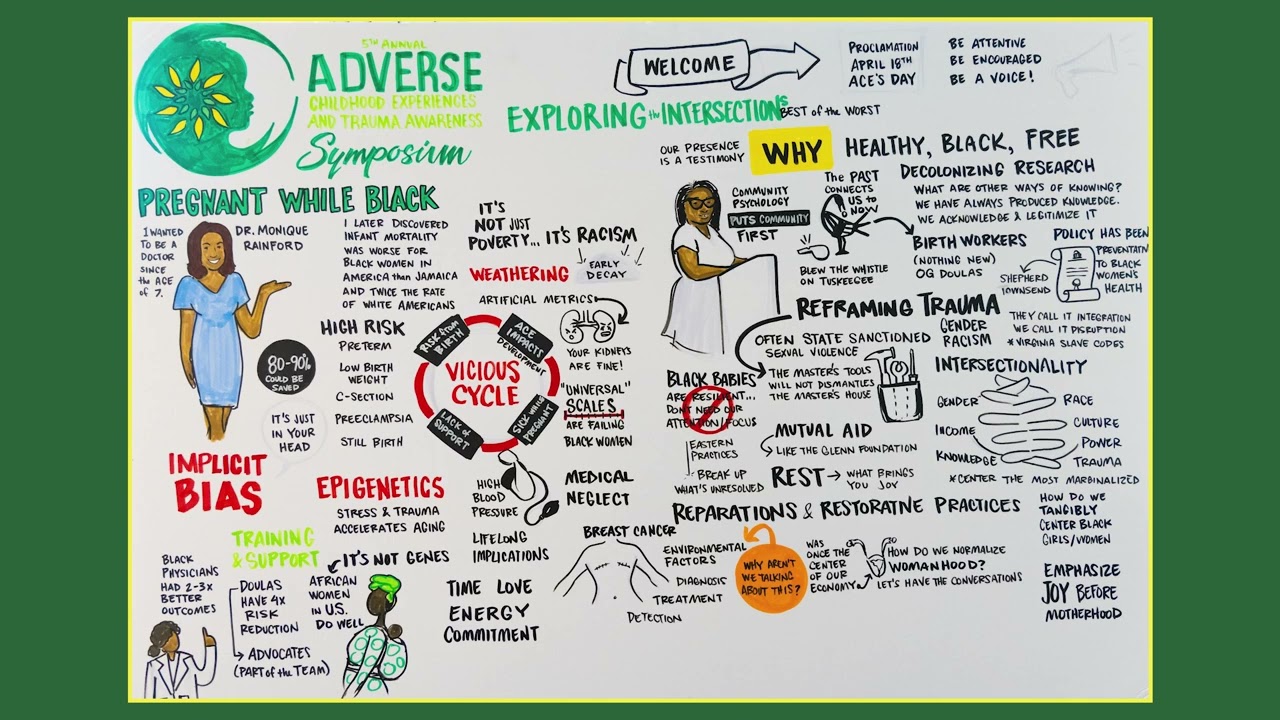 5TH ANNUAL
ADVERSE
CHILDHOOD EXPERIENCES
AND TRAUMA AWARENESS
Symposium
WELCOME
PROCLAMATION
APRIL 18TH
ACE'S DAY
BE ATTENTIVE
BE ENCOURAGED
BE A VOICE!
EXPLORING the INTERSECTIONS
BEST of the WORST
PREGNANT WHILE BLACK
I WANTED
TO BE A
DOCTOR
SINCE
the AGE
of 7.
DR. MONIQUE
RAINFORD
I LATER DISCOVERED
INFANT MORTALITY
WAS WORSE FOR
BLACK WOMEN IN
AMERICA than JAMAICA
AND TWICE THE RATE
OF WHITE AMERICANS
IT'S
NOT JUST
POVERTY... IT'S RACISM
WEATHERING
EARLY
DECAY
ARTIFICIAL METRICS
YOUR KIDNEYS
ARE FINE!
"UNIVERSAL"
SCALES
ARE FAILING
BLACK WOMEN
80-90%
COULD BE
SAVED
HIGH RISK
PRETERM
LOW BIRTH
WEIGHT
C-SECTION
PREECLAMPSIA
STILL BIRTH
IT'S JUST
IN YOUR
HEAD
VICIOUS
CYCLE
RISK from
BIRTH
ACE
IMPACTS
DEVELOPMENT
SICK WHILE
PREGNANT
LACK of
SUPPORT
IMPLICIT
BIAS
EPIGENETICS
STRESS & TRAUMA
ACCELERATES AGING
IT'S NOT GENES
AFRICAN
WOMEN
IN U.S.
DO WELL
HIGH
BLOOD
PRESSURE
LIFELONG
IMPLICATIONS
MEDICAL
NEGLECT
TRAINING
& SUPPORT
BLACK
PHYSICIANS
HAD 2-3X
BETTER
OUTCOMES
DOULAS
HAVE 4X
RISK
REDUCTION
ADVOCATES
(PART of the TEAM)
TIME LOVE
ENERGY
COMMITMENT
BREAST CANCER
ENVIRONMENTAL
FACTORS
DIAGNOSIS
TREATMENT
DETECTION
OUR PRESENCE
IS A TESTIMONY
WHY
HEALTHY, BLACK, FREE
COMMUNITY
PSYCHOLOGY
PUTS COMMUNITY
FIRST
The PAST
CONNECTS
US to
NOW
BLEW THE WHISTLE
ON TUSKEEGEE
DECOLONIZING RESEARCH
WHAT ARE OTHER WAYS OF KNOWING?
WE HAVE ALWAYS PRODUCED KNOWLEDGE.
WE ACKNOWLEDGE & LEGITIMIZE IT
BIRTH WORKERS
(NOTHING NEW)
OG DOULAS
POLICY HAS BEEN
PREVENTATN
TO BLACK
WOMEN'S
HEALTH
SHEPHERD
TOWNSEND
THEY CALL IT INTEGRATION
WE CALL IT DISRUPTION
*VIRGINIA SLAVE CODES
REFRAMING TRAUMA
OFTEN STATE SANCTIONED
SEXUAL VIOLENCE
GENDER
RACISM
THE MASTER'S TOOLS
WILL NOT DISMANTLES
THE MASTER'S HOUSE
BLACK BABIES
ARE RESILIENT...
DON'T NEED OUR
ATTENTION/FOCUS
EASTERN
PRACTICES
BREAK UP
WHAT'S UNRESOLVED
MUTUAL AID
LIKE THE GLENN FOUNDATION
REST → WHAT BRINGS
YOU JOY
INTERSECTIONALITY
GENDER
RACE
CULTURE
INCOME
POWER
KNOWLEDGE
TRAUMA
*CENTER THE MOST MARGINALIZED
REPARATIONS & RESTORATIVE PRACTICES
WHY AREN'T
WE TALKING
ABOUT THIS?
WAS
ONCE THE
CENTER
OF OUR
ECONOMY
HOW DO WE NORMALIZE
WOMANHOOD?
LET'S HAVE THE CONVERSATIONS
HOW DO WE
TANGIBLY
CENTER BLACK
GIRLS/WOMEN
EMPHASIZE
JOY BEFORE
MOTHERHOOD